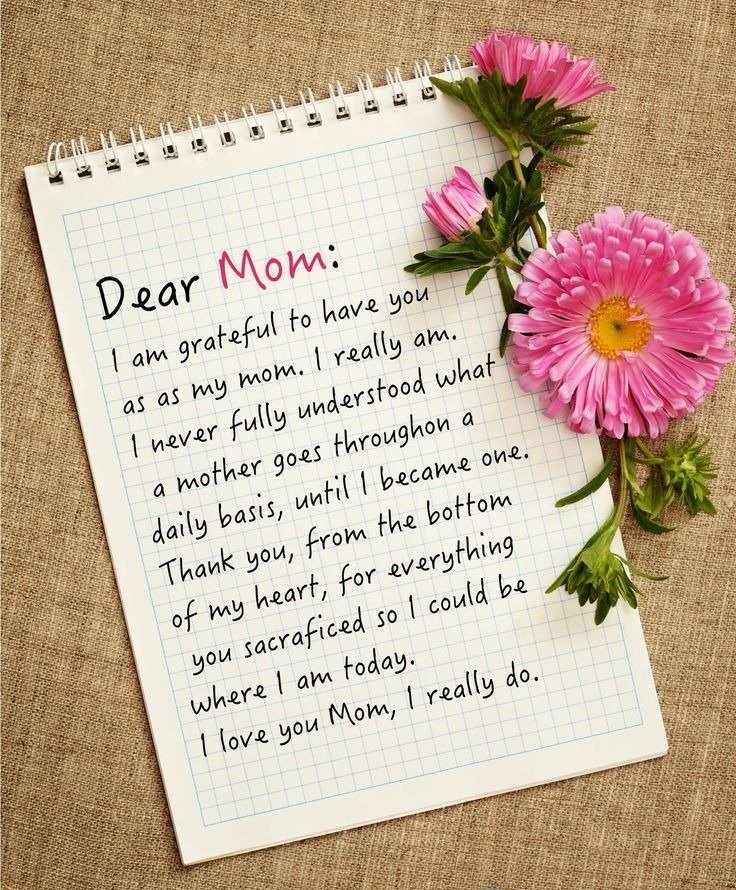 Dear Mom:
I am grateful to have you
as as my mom. I really am.
I never fully understood what
a mother goes throughon a
daily basis, until I became one.
Thank you, from the bottom
of my heart, for everything
you sacraficed so I could be
where I am today.
I love you Mom, I really do.